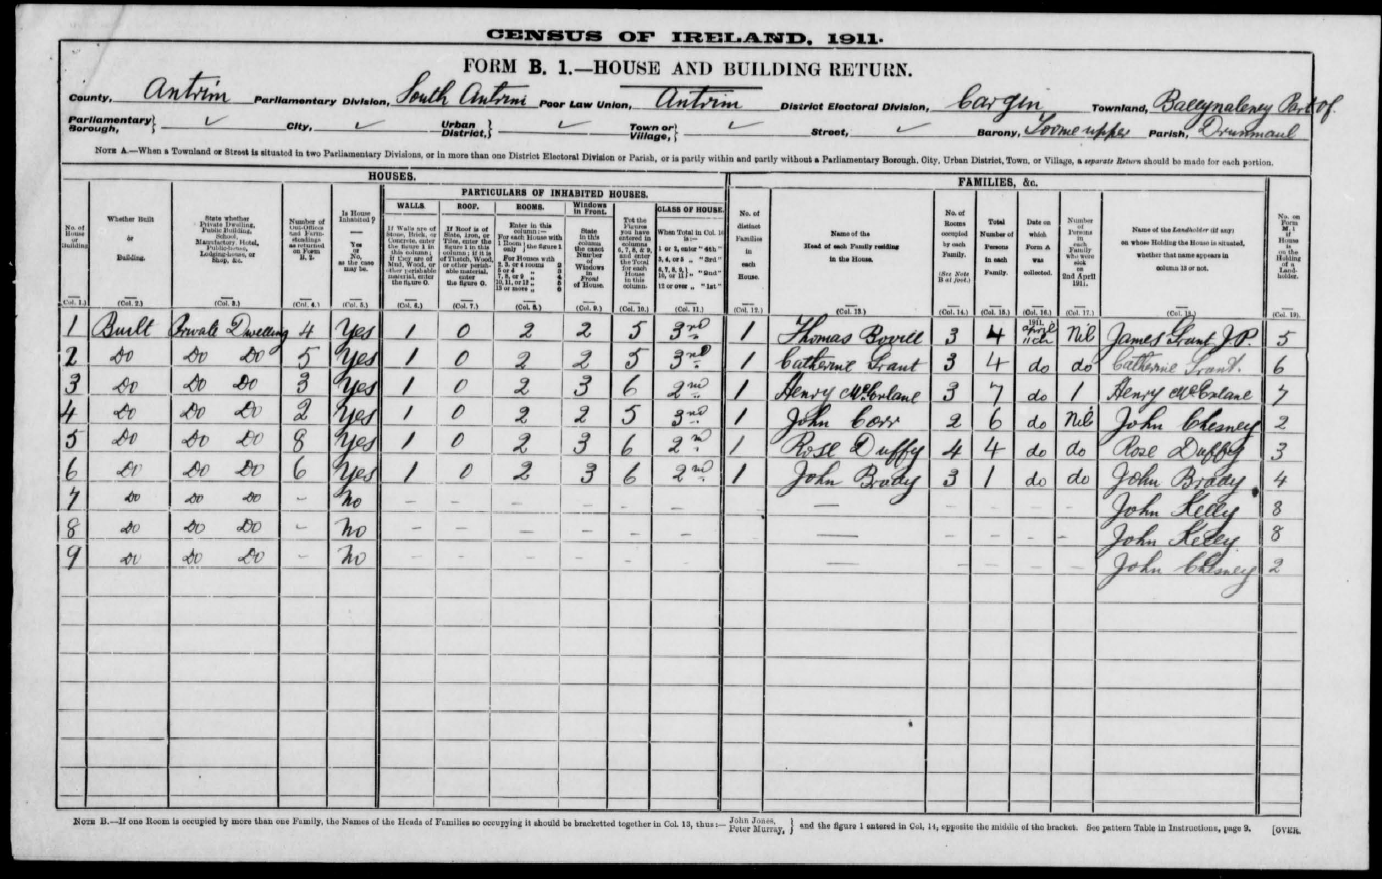 CENSUS OF IRELAND, 1911.
FORM B. 1.—HOUSE AND BUILDING RETURN.
County, Antrim Parliamentary Division, South Antrim Poor Law Union, Antrim District Electoral Division, Cargin Townland, Ballynaleney Part of
Parliamentary Borough, } ✓ City, ✓ Urban District, } ✓ Town or Village, } ✓ Street, ✓ Barony, Toome upper Parish, Drummaul
NOTE A.—When a Townland or Street is situated in two Parliamentary Divisions, or in more than one District Electoral Division or Parish, or is partly within and partly without a Parliamentary Borough, City, Urban District, Town, or Village, a separate Return should be made for each portion.
HOUSES. FAMILIES, &c.
PARTICULARS OF INHABITED HOUSES.
WALLS. ROOF. ROOMS. Windows in Front. CLASS OF HOUSE.
No. of House or Building
Whether Built or Building.
State whether Private Dwelling, Public Building, School, Manufactory, Hotel, Public-house, Lodging-house, or Shop, &c.
Number of Out-Offices and Farm-steadings as returned on Form B. 2.
Is House Inhabited? — Yes or No, as the case may be.
If Walls are of Stone, Brick, or Concrete, enter the figure 1 in this column; if they are of Mud, Wood, or other perishable material, enter the figure 0.
If Roof is of Slate, Iron, or Tiles, enter the figure 1 in this column; if it is of Thatch, Wood, or other perishable material, enter the figure 0.
Enter in this column:— For each House with 1 Room only } the figure 1
For Houses with 2, 3, or 4 rooms 2
5 or 6 „ 3
7, 8, or 9 „ 4
10, 11, or 12 „ 5
13 or more „ 6
State in this column the exact Number of Windows in Front of House.
Tot the Figures you have entered in columns 6, 7, 8, & 9, and enter the Total for each House in this column.
When Total in Col. 10 is:—
1 or 2, enter "4th"
3, 4, or 5 „ "3rd"
6, 7, 8, 9, 10, or 11 } „ "2nd"
12 or over „ "1st"
No. of distinct Families in each House.
Name of the Head of each Family residing in the House.
No. of Rooms occupied by each Family. (See Note B at foot.)
Total Number of Persons in each Family.
Date on which Form A was collected.
Number of Persons in each Family who were sick on 2nd April 1911.
Name of the Landholder (if any) on whose Holding the House is situated, whether that name appears in column 13 or not.
No. on Form M. 1 if House is on the Holding of a Land-holder.
(Col. 1.) (Col. 2.) (Col. 3.) (Col. 4.) (Col. 5.) (Col. 6.) (Col. 7.) (Col. 8.) (Col. 9.) (Col. 10.) (Col. 11.) (Col. 12.) (Col. 13.) (Col. 14.) (Col. 15.) (Col. 16.) (Col. 17.) (Col. 18.) (Col. 19).
1 Built Private Dwelling 4 Yes 1 0 2 2 5 3rd 1 Thomas Bovill 3 4 1911. April 11th Nil James Grant J.P. 5
2 Do Do Do 5 Yes 1 0 2 2 5 3rd 1 Catherine Grant 3 4 do do Catherine Grant. 6
3 Do Do Do 3 Yes 1 0 2 3 6 2nd 1 Henry McErlane 3 7 do 1 Henry McErlane 7
4 Do Do Do 2 Yes 1 0 2 2 5 3rd 1 John Corr 2 6 do Nil John Chesney 2
5 Do Do Do 8 Yes 1 0 2 3 6 2nd 1 Rose Duffy 4 4 do do Rose Duffy 3
6 Do Do Do 6 Yes 1 0 2 3 6 2nd 1 John Brady 3 1 do do John Brady 4
7 Do Do Do - No - - - - - - - — - - - - John Kelly 8
8 Do Do Do - No - - - - - - - — - - - - John Kelly 8
9 Do Do Do - No - - - - - - — - - - - John Chesney 2
NOTE B.—If one Room is occupied by more than one Family, the Names of the Heads of Families so occupying it should be bracketted together in Col. 13, thus:— John Jones, Peter Murray, } and the figure 1 entered in Col. 14, opposite the middle of the bracket. See pattern Table in Instructions, page 9. [OVER.